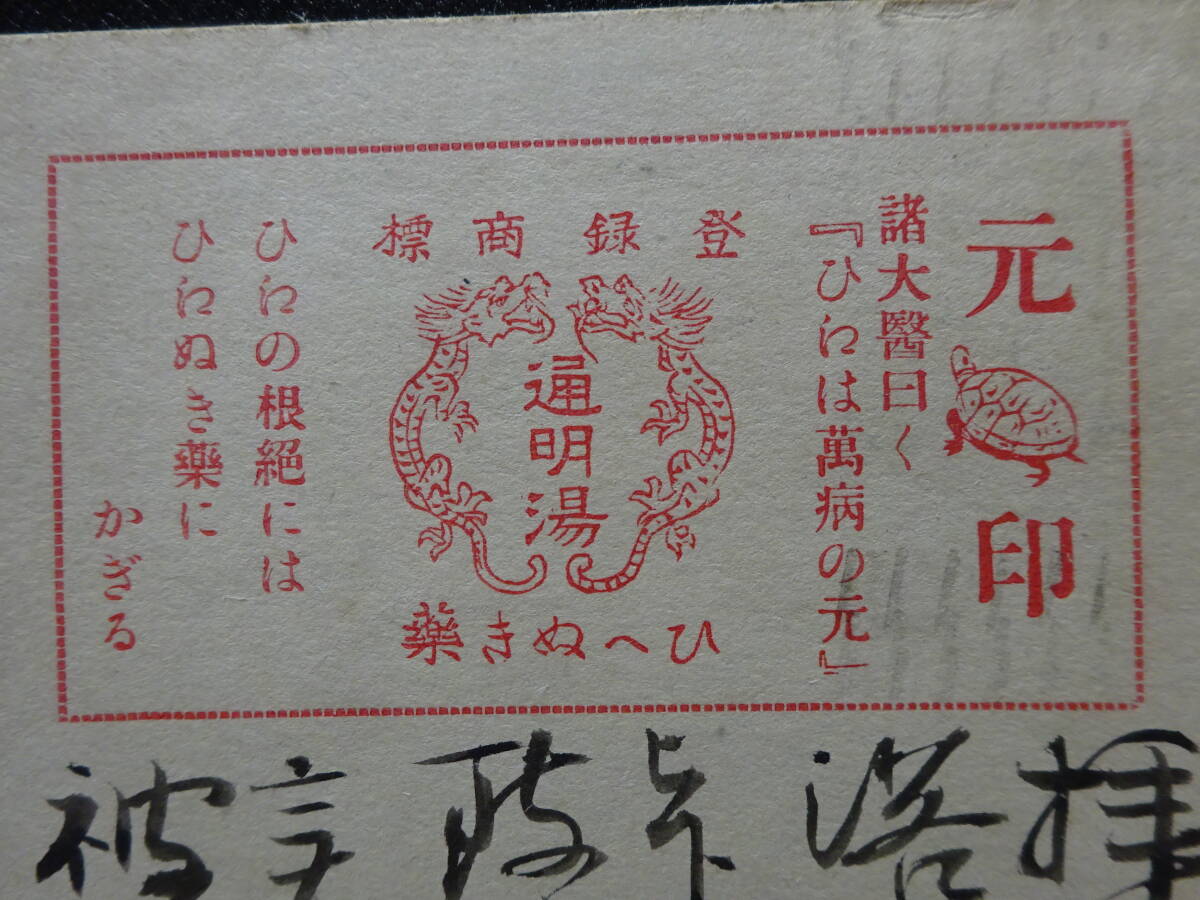 元印
諸大醫曰く
『ひ𛀁は萬病の元』
登録商標
通明湯
ひへぬき藥
ひ𛀁の根絕には
ひ𛀁ぬき藥に
かぎる